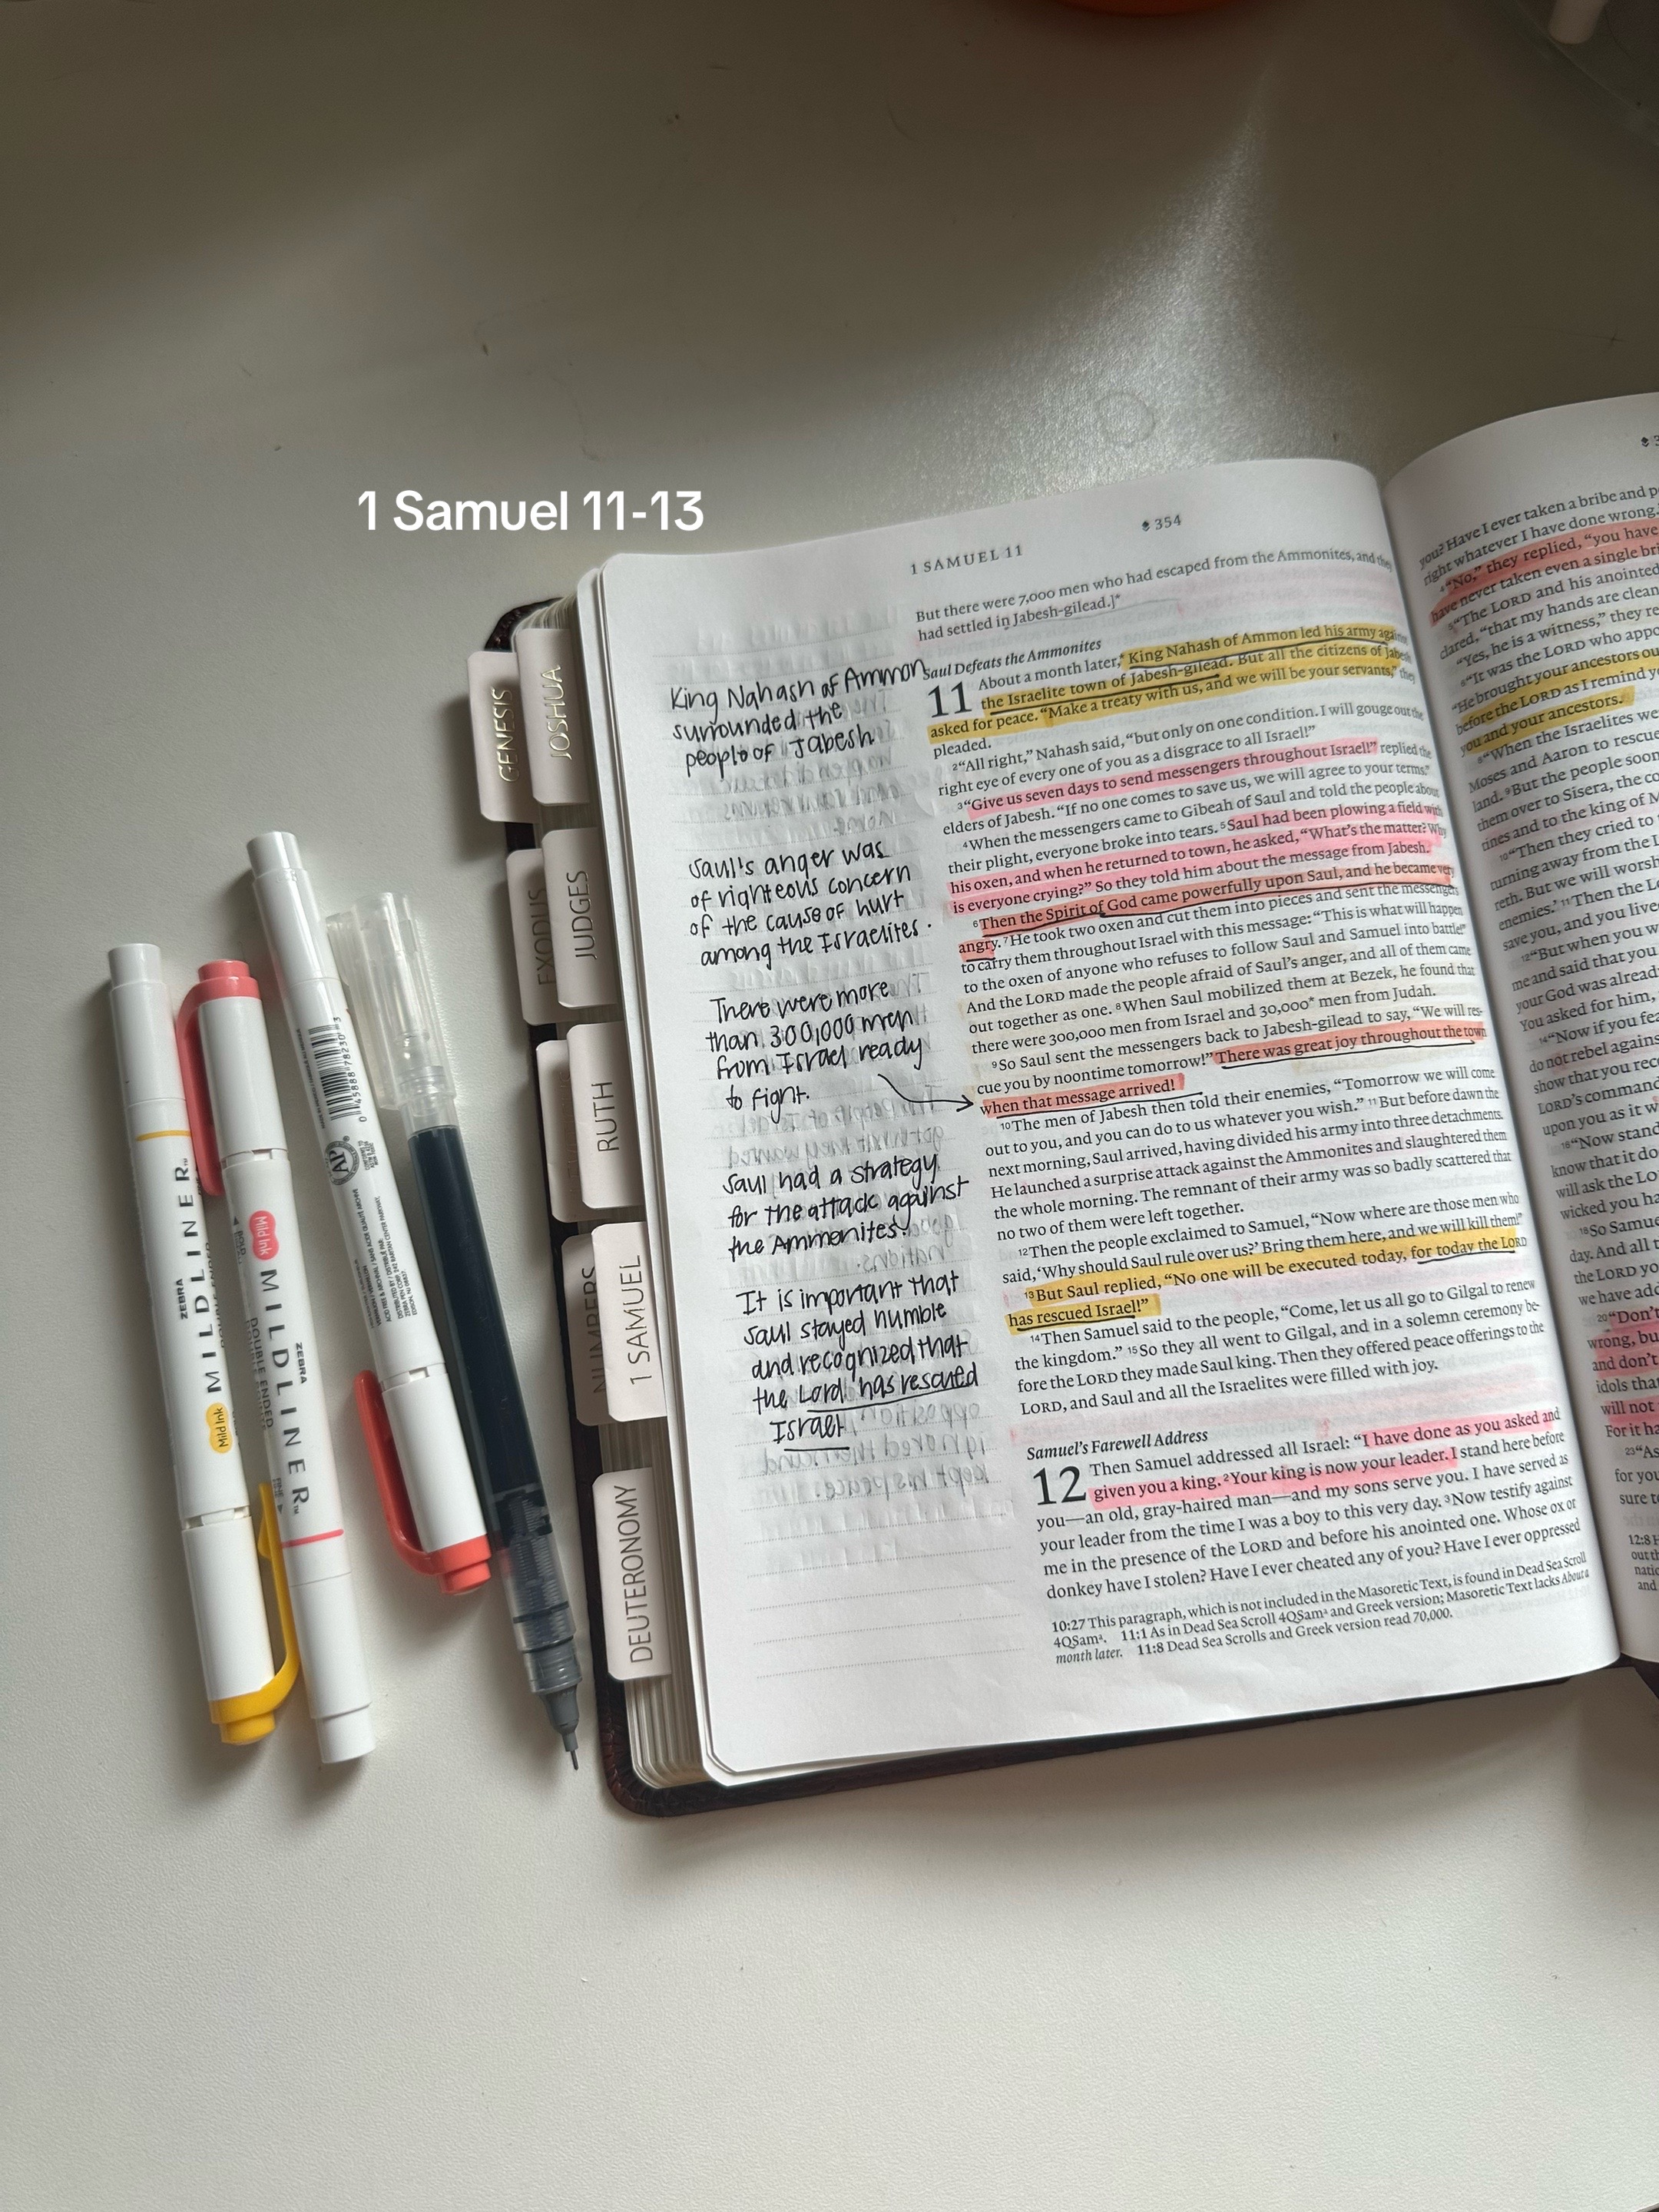 1 Samuel 11-13
1 SAMUEL 11
354
But there were 7,000 men who had escaped from the Ammonites, and they
had settled in Jabesh-gilead.]*
Saul Defeats the Ammonites
11 About a month later,* King Nahash of Ammon led his army against
the Israelite town of Jabesh-gilead. But all the citizens of Jabesh
asked for peace. “Make a treaty with us, and we will be your servants,” they
pleaded.
2“All right,” Nahash said, “but only on one condition. I will gouge out the
right eye of every one of you as a disgrace to all Israel!”
3“Give us seven days to send messengers throughout Israel!” replied the
elders of Jabesh. “If no one comes to save us, we will agree to your terms.”
4When the messengers came to Gibeah of Saul and told the people about
their plight, everyone broke into tears. 5Saul had been plowing a field with
his oxen, and when he returned to town, he asked, “What’s the matter? Why
is everyone crying?” So they told him about the message from Jabesh.
6Then the Spirit of God came powerfully upon Saul, and he became very
angry. 7He took two oxen and cut them into pieces and sent the messengers
to carry them throughout Israel with this message: “This is what will happen
to the oxen of anyone who refuses to follow Saul and Samuel into battle!”
And the LORD made the people afraid of Saul’s anger, and all of them came
out together as one. 8When Saul mobilized them at Bezek, he found that
there were 300,000 men from Israel and 30,000* men from Judah.
9So Saul sent the messengers back to Jabesh-gilead to say, “We will res-
cue you by noontime tomorrow!” There was great joy throughout the town
when that message arrived!
10The men of Jabesh then told their enemies, “Tomorrow we will come
out to you, and you can do to us whatever you wish.” 11But before dawn the
next morning, Saul arrived, having divided his army into three detachments.
He launched a surprise attack against the Ammonites and slaughtered them
the whole morning. The remnant of their army was so badly scattered that
no two of them were left together.
12Then the people exclaimed to Samuel, “Now where are those men who
said, ‘Why should Saul rule over us?’ Bring them here, and we will kill them!”
13But Saul replied, “No one will be executed today, for today the LORD
has rescued Israel!”
14Then Samuel said to the people, “Come, let us all go to Gilgal to renew
the kingdom.” 15So they all went to Gilgal, and in a solemn ceremony be-
fore the LORD they made Saul king. Then they offered peace offerings to the
LORD, and Saul and all the Israelites were filled with joy.
Samuel’s Farewell Address
12 Then Samuel addressed all Israel: “I have done as you asked and
given you a king. 2Your king is now your leader. I stand here before
you—an old, gray-haired man—and my sons serve you. I have served as
your leader from the time I was a boy to this very day. 3Now testify against
me in the presence of the LORD and before his anointed one. Whose ox or
donkey have I stolen? Have I ever cheated any of you? Have I ever oppressed
10:27 This paragraph, which is not included in the Masoretic Text, is found in Dead Sea Scroll
4QSamᵃ. 11:1 As in Dead Sea Scroll 4QSamᵃ and Greek version; Masoretic Text lacks About a
month later. 11:8 Dead Sea Scrolls and Greek version read 70,000.
King Nahash of Ammon
surrounded the
people of Jabesh
Saul's anger was
of righteous concern
of the cause of hurt
among the Israelites.
There were more
than 300,000 men
from Israel ready
to fight.
Saul had a strategy
for the attack against
the Ammenites!
It is important that
Saul stayed humble
and recognized that
the Lord has rescued
Israel
you? Have I ever taken a bribe and
right whatever I have done wrong.
4“No,” they replied, “you have
have never taken even a single
5“The LORD and his anointed
dared, “that my hands are clean
“Yes, he is a witness,” they
6“It was the LORD who
“He brought your ancestors
before the LORD as I remind
you and your ancestors.
8“When the Israelites
Moses and Aaron to rescue
land. 9But the people soon
them over to Sisera, the
tines and to the king of
10“Then they cried to
turning away from the
reth. But we will
enemies.’ 11Then the
save you, and you
12“But when you
me and said that you
your God was already
You asked for him,
14“Now if you
do not rebel against
show that you
LORD’s command
upon you as it
16“Now stand
know that it
will ask the
wicked you
18So Samuel
day. And all
the LORD
we have
20“Don’t
wrong, but
and don’t
idols that
will not
For it
23“As
for you
sure to
12:8
out
and
GENESIS
JOSHUA
EXODUS
JUDGES
RUTH
NUMBERS
1 SAMUEL
DEUTERONOMY
ZEBRA
MILDLINER™
DOUBLE ENDED
Mild Ink
ZEBRA
MILDLINER™
DOUBLE ENDED
Mild Ink
BOLD
FINE
AP
0 45888 78230 3